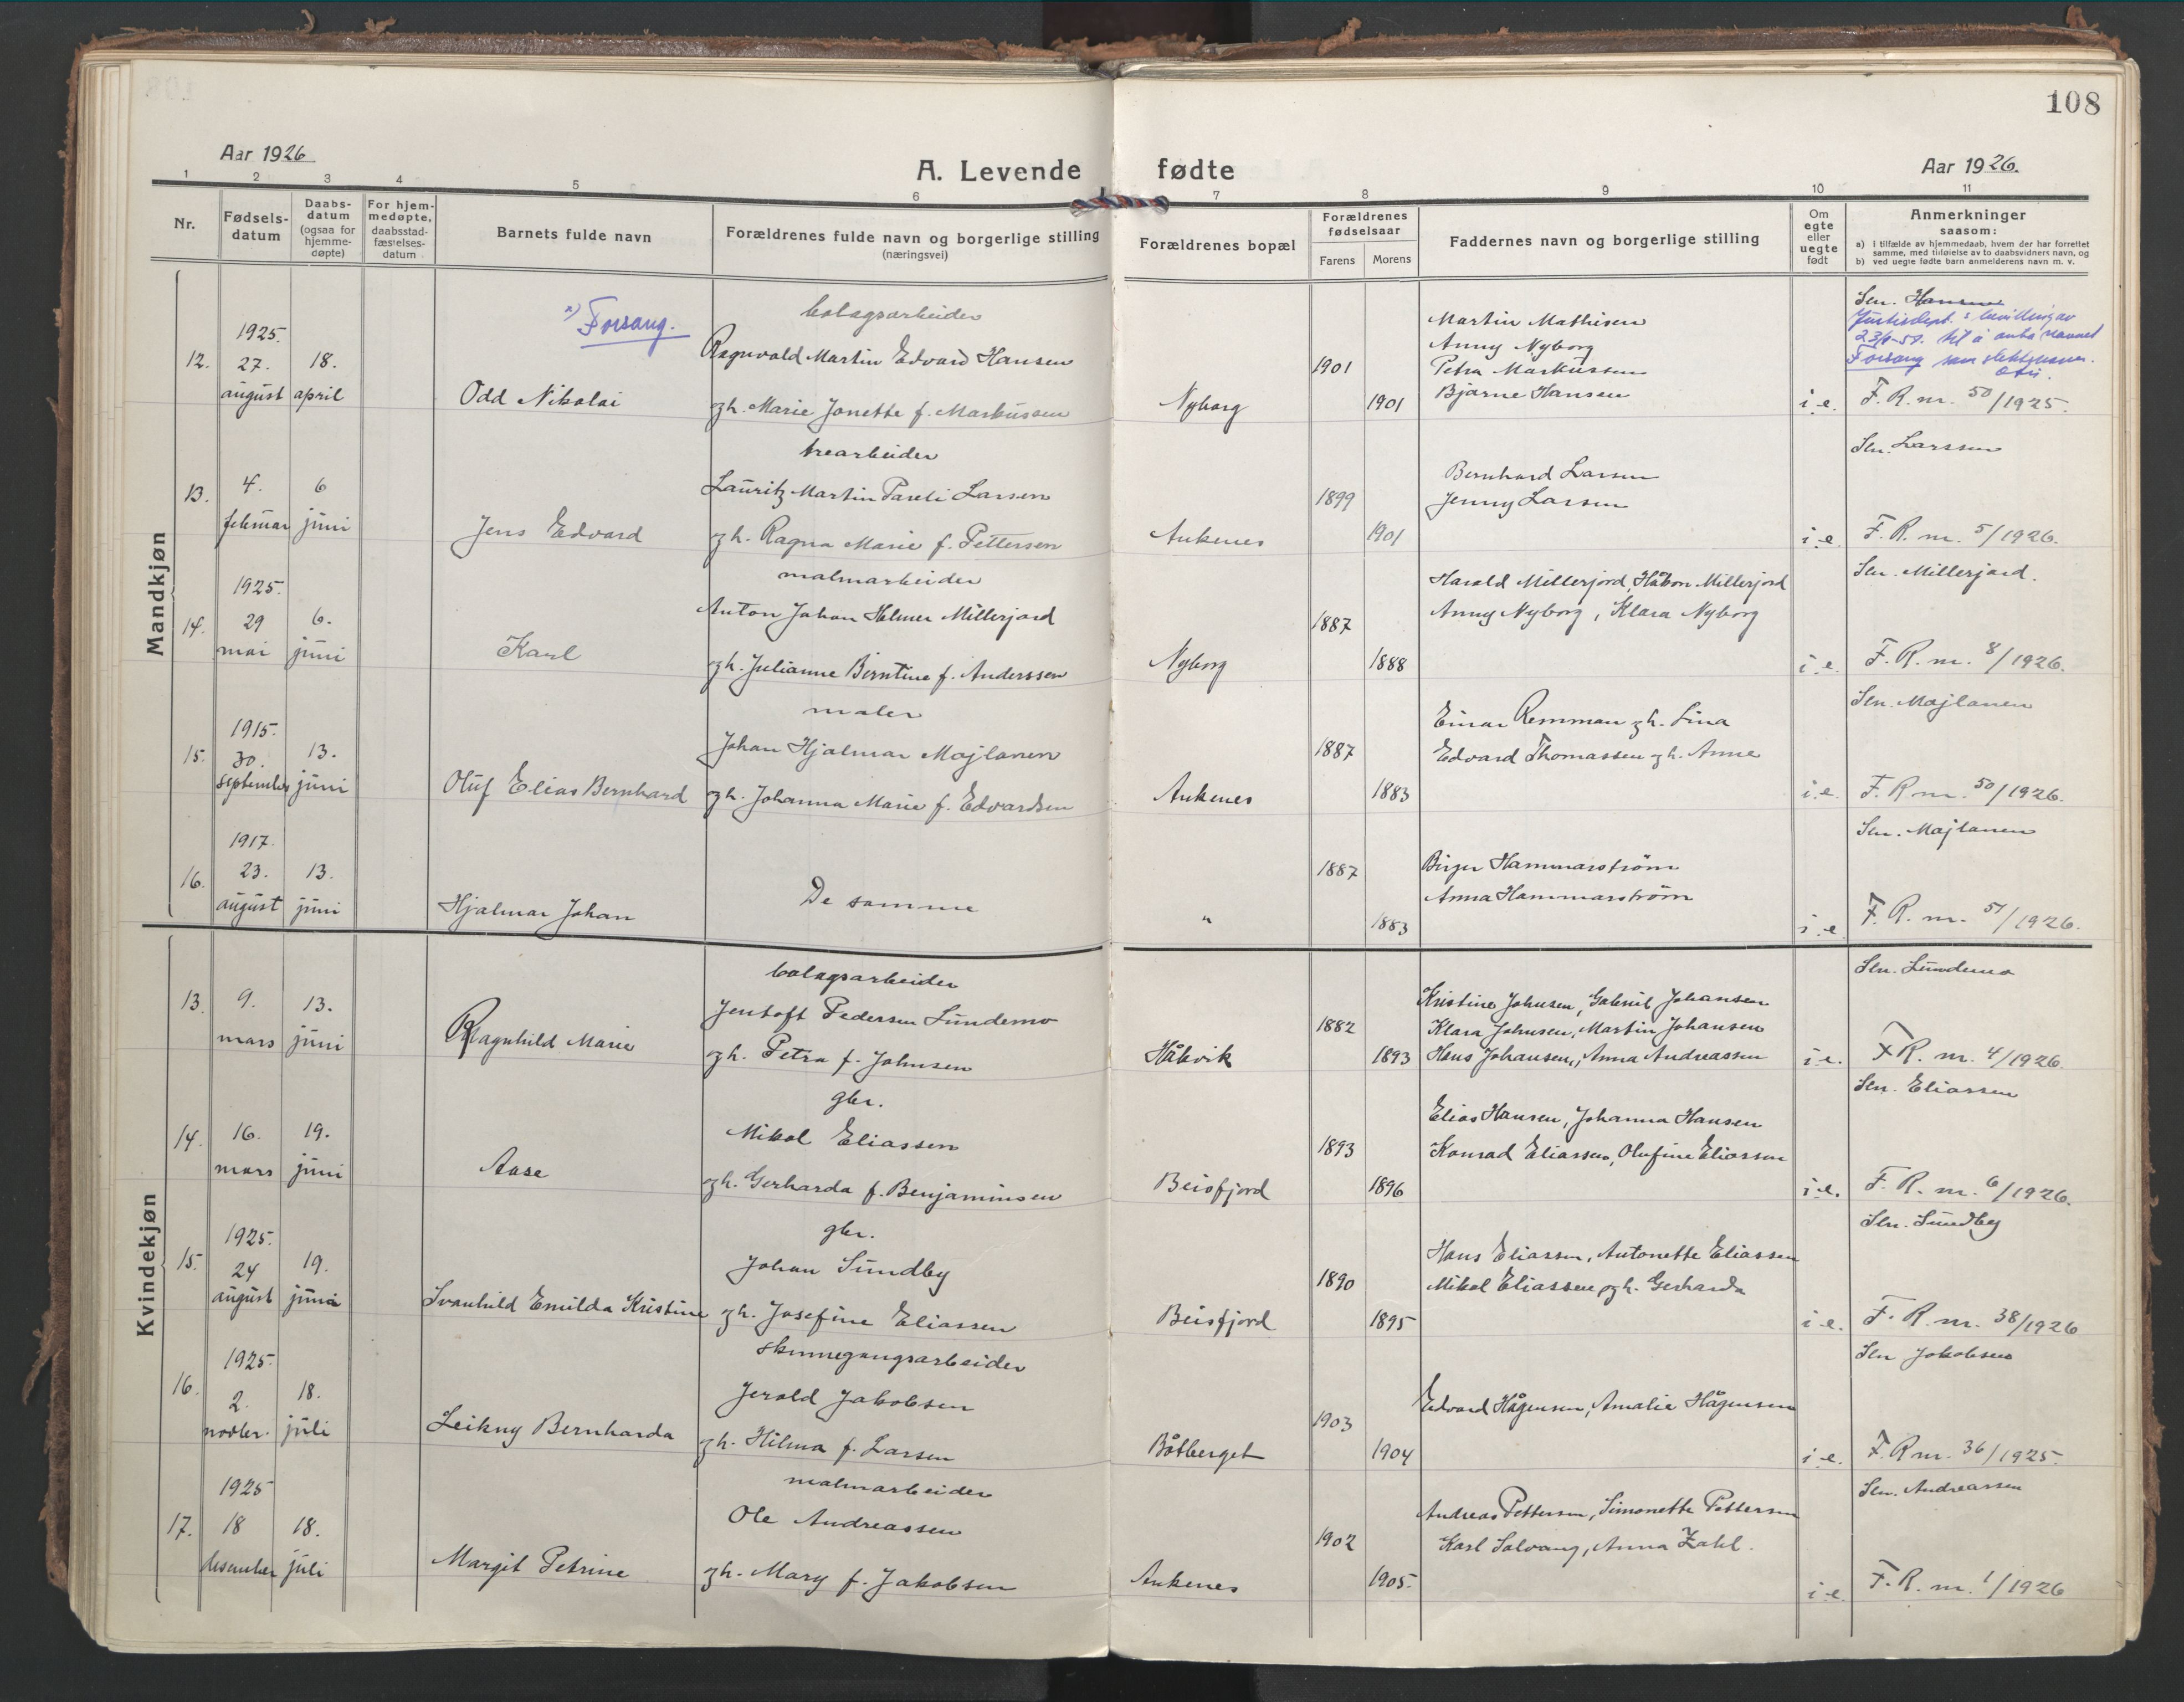 108
Aar 1926
A. Levende fødte
Aar 1926.
1 2 3 4 5 6 7 8 9 10 11
Nr.
Fødsels-
datum
Daabs-
datum
(ogsaa for
hjemme-
døpte)
For hjem-
medøpte,
daabsstad-
fæstelses-
datum
Barnets fulde navn
Forældrenes fulde navn og borgerlige stilling
(næringsvei)
Forældrenes bopæl
Forældrenes
fødselsaar
Farens Morens
Faddernes navn og borgerlige stilling
Om
egte
eller
uegte
født
Anmerkninger
saasom:
a) i tilfælde av hjemmedaab, hvem der har forrettet
samme, med tilføielse av to daabsvidners navn, og
b) ved uegte fødte barn anmelderens navn m. v.
Mandkjøn
12.
1925.
27.
august
18.
april
x) Forsang.
Odd Nikolai
bolagsarbeider
Ragnvald Martin Edvard Hansen
og h. Marie Jonette f. Markussen
Nyborg
1901
1901
Martin Mathisen
Anny Nyborg
Petra Markussen
Bjarne Hansen
i. e.
Sln. Hansen
Justisdept.s bevilling av
til å anta navnet
Forsang som slektsnavn.
F. R. nr. 50/1925.
13.
4.
februar
6
juni
Jens Edvard
trearbeider
Lauritz Martin Pareli Larsen
og h. Ragna Marie f. Pettersen
Ankenes
1899
1901
Bernhard Larsen
Jenny Larsen
i. e.
Sln. Larssen
F. R. nr. 5/1926.
14.
1925.
29
mai
6.
juni
Karl
malmarbeider
Anton Johan Helmer Millerjord
og h. Julianne Berntine f. Anderssen
Nyborg
1887
1888
Harald Millerjord, Håkon Millerjord
Anny Nyborg, Klara Nyborg
i. e.
Sln. Millerjord.
F. R. nr. 8/1926.
15.
1915.
30.
september
13.
juni
Oluf Elias Bernhard
maler
Johan Hjalmar Majlanen
og h. Johanna Marie f. Edvardsen
Ankenes
1887
1883
Einar Remman og h. Lina
Edvard Thomassen og h. Anne
i. e.
Sln. Majlanen
F. R nr. 50/1926.
16.
1917.
23.
august
13.
juni
Hjalmar Johan
De samme
"
1887
1883
Birger Hammarström
Anna Hammarström
i. e.
Sln. Majlanen
F. R. nr. 51/1926.
Kvindekjøn
13.
9.
mars
13.
juni
Ragnhild Marie
bolagsarbeider
Jentoft Pedersen Lundemo
og h. Petra f. Johnsen
Håkvik
1882
1893
Kristine Johnsen, Gabriel Johansen
Klara Johnsen, Martin Johansen
Hans Johansen, Anna Andreassen
i. e.
Sln. Lundemo
F. R. nr. 4/1926.
14.
16.
mars
19.
juni
Aase
gbr.
Mikal Eliassen
og h. Gerharda f. Benjaminsen
Beisfjord
1893
1896
Elias Hansen, Johanna Hansen
Konrad Eliassen, Olufine Eliassen
i. e.
Sln. Eliassen
F. R. nr. 6/1926.
15.
1925.
24
august
19.
juni
Svanhild Emilda Kristine
gbr.
Johan Sundby
og h. Josefine Eliassen
Beisfjord
1890
1895
Hans Eliassen, Antonette Eliassen
Mikal Eliassen og h. Gerharda
i. e.
Sln. Sundby
F. R. nr. 38/1926
16.
1925.
2.
novbr.
18.
juli
Leikny Bernharda
skinnegangsarbeider
Jerald Jakobsen
og h. Hilma f. Larsen
Båtberget
1903
1904
Edvard Hågensen, Amalie Hågensen
i. e.
Sln Jakobsen
F. R nr. 36/1925.
17.
1925
18
desember
18.
juli
Margit Petrine
malmarbeider
Ole Andreassen
og h. Mary f. Jakobsen
Ankenes
1902
1905.
Andreas Pettersen, Simonette Pettersen
Karl Solvang, Anna Zahl.
i. e.
Sln. Andreassen
F. R. nr. 1/1926